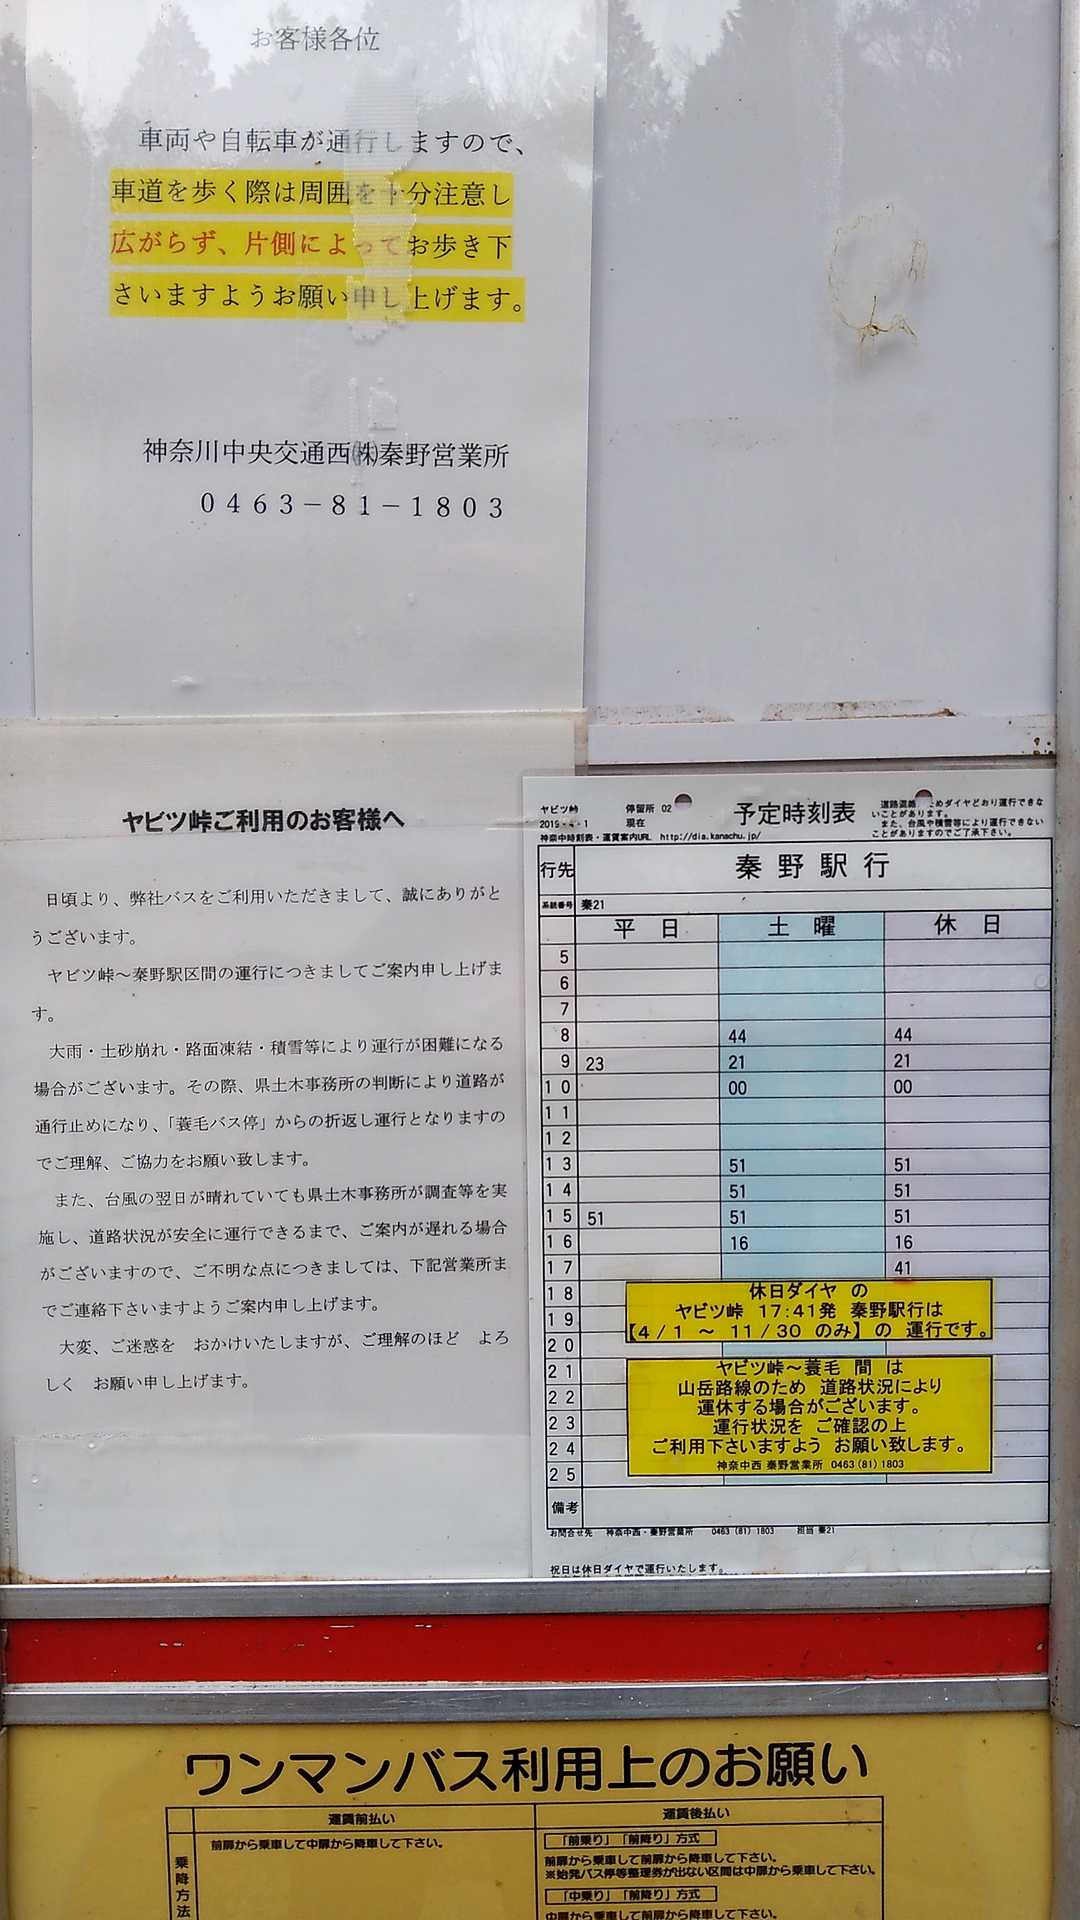 お客様各位
車両や自転車が通行しますので、
車道を歩く際は周囲を十分注意し
広がらず、片側によってお歩き下
さいますようお願い申し上げます。
神奈川中央交通西㈱秦野営業所
0463-81-1803
ヤビツ峠ご利用のお客様へ
日頃より、弊社バスをご利用いただきまして、誠にありがと
うございます。
ヤビツ峠～秦野駅区間の運行につきましてご案内申し上げま
す。
大雨・土砂崩れ・路面凍結・積雪等により運行が困難になる
場合がございます。その際、県土木事務所の判断により道路が
通行止めになり、「蓑毛バス停」からの折返し運行となりますの
でご理解、ご協力をお願い致します。
また、台風の翌日が晴れていても県土木事務所が調査等を実
施し、道路状況が安全に運行できるまで、ご案内が遅れる場合
がございますので、ご不明な点につきましては、下記営業所ま
でご連絡下さいますようご案内申し上げます。
大変、ご迷惑を おかけいたしますが、ご理解のほど よろ
しく お願い申し上げます。
ヤビツ峠 停留所 02 予定時刻表
2019 - 4 - 1 現在
神奈中時刻表・運賃案内URL http://dia.kanachu.jp/
道路混雑 ためダイヤどおり運行できな
いことがあります。
また、台風や積雪等により運行できない
ことがありますのでご了承下さい。
行先 秦野駅行
系統番号 秦21
平日 土曜 休日
5
6
7
8 44 44
9 23 21 21
10 00 00
11
12
13 51 51
14 51 51
15 51 51 51
16 16 16
17 41
18
19
20
21
22
23
24
25
休日ダイヤ の
ヤビツ峠 17:41発 秦野駅行は
【4/1 ～ 11/30 のみ】の 運行です。
ヤビツ峠～蓑毛 間 は
山岳路線のため 道路状況により
運休する場合がございます。
運行状況を ご確認の上
ご利用下さいますよう お願い致します。
神奈中西 秦野営業所 0463(81)1803
備考
お問合せ先 神奈中西・秦野営業所 0463(81)1803 担当 秦21
祝日は休日ダイヤで運行いたします。
ワンマンバス利用上のお願い
運賃前払い 運賃後払い
乗降方法
前扉から乗車して中扉から降車して下さい。
「前乗り」「前降り」方式
前扉から乗車して前扉から降車して下さい。
※始発バス停等整理券が出ない区間は中扉から乗車して下さい。
「中乗り」「前降り」方式
中扉から乗車して前扉から降車して下さい。